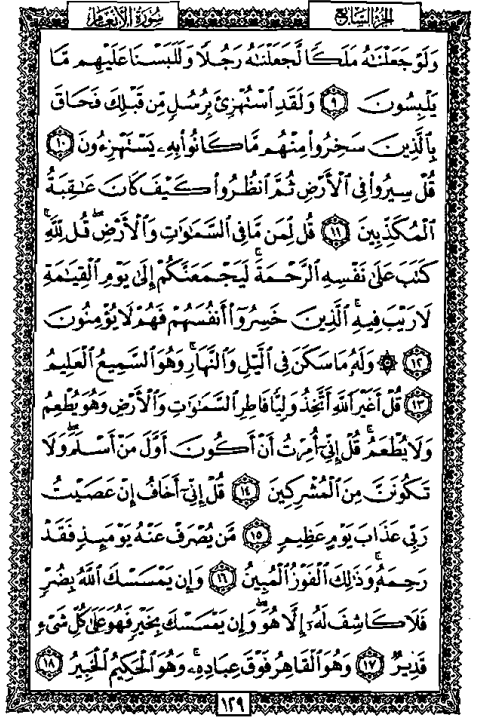 سُورَةُ الأَنْعَام
الجُزءُ السَّابِعُ
وَلَوْ جَعَلْنَٰهُ مَلَكًا لَّجَعَلْنَٰهُ رَجُلًا وَلَلَبَسْنَا عَلَيْهِم مَّا
يَلْبِسُونَ ٩ وَلَقَدِ ٱسْتُهْزِئَ بِرُسُلٍ مِّن قَبْلِكَ فَحَاقَ
بِٱلَّذِينَ سَخِرُوا۟ مِنْهُم مَّا كَانُوا۟ بِهِۦ يَسْتَهْزِءُونَ ١٠
قُلْ سِيرُوا۟ فِى ٱلْأَرْضِ ثُمَّ ٱنظُرُوا۟ كَيْفَ كَانَ عَٰقِبَةُ
ٱلْمُكَذِّبِينَ ١١ قُل لِّمَن مَّا فِى ٱلسَّمَٰوَٰتِ وَٱلْأَرْضِ ۖ قُل لِّلَّهِ ۚ
كَتَبَ عَلَىٰ نَفْسِهِ ٱلرَّحْمَةَ ۚ لَيَجْمَعَنَّكُمْ إِلَىٰ يَوْمِ ٱلْقِيَٰمَةِ
لَا رَيْبَ فِيهِ ۚ ٱلَّذِينَ خَسِرُوٓا۟ أَنفُسَهُمْ فَهُمْ لَا يُؤْمِنُونَ
١٢ ۞ وَلَهُۥ مَا سَكَنَ فِى ٱلَّيْلِ وَٱلنَّهَارِ ۚ وَهُوَ ٱلسَّمِيعُ ٱلْعَلِيمُ
١٣ قُلْ أَغَيْرَ ٱللَّهِ أَتَّخِذُ وَلِيًّا فَاطِرِ ٱلسَّمَٰوَٰتِ وَٱلْأَرْضِ وَهُوَ يُطْعِمُ
وَلَا يُطْعَمُ ۗ قُلْ إِنِّىٓ أُمِرْتُ أَنْ أَكُونَ أَوَّلَ مَنْ أَسْلَمَ ۖ وَلَا
تَكُونَنَّ مِنَ ٱلْمُشْرِكِينَ ١٤ قُلْ إِنِّىٓ أَخَافُ إِنْ عَصَيْتُ
رَبِّى عَذَابَ يَوْمٍ عَظِيمٍ ١٥ مَّن يُصْرَفْ عَنْهُ يَوْمَئِذٍ فَقَدْ
رَحِمَهُۥ ۚ وَذَٰلِكَ ٱلْفَوْزُ ٱلْمُبِينُ ١٦ وَإِن يَمْسَسْكَ ٱللَّهُ بِضُرٍّ
فَلَا كَاشِفَ لَهُۥٓ إِلَّا هُوَ ۖ وَإِن يَمْسَسْكَ بِخَيْرٍ فَهُوَ عَلَىٰ كُلِّ شَىْءٍ
قَدِيرٌ ١٧ وَهُوَ ٱلْقَاهِرُ فَوْقَ عِبَادِهِۦ ۚ وَهُوَ ٱلْحَكِيمُ ٱلْخَبِيرُ ١٨
١٢٩